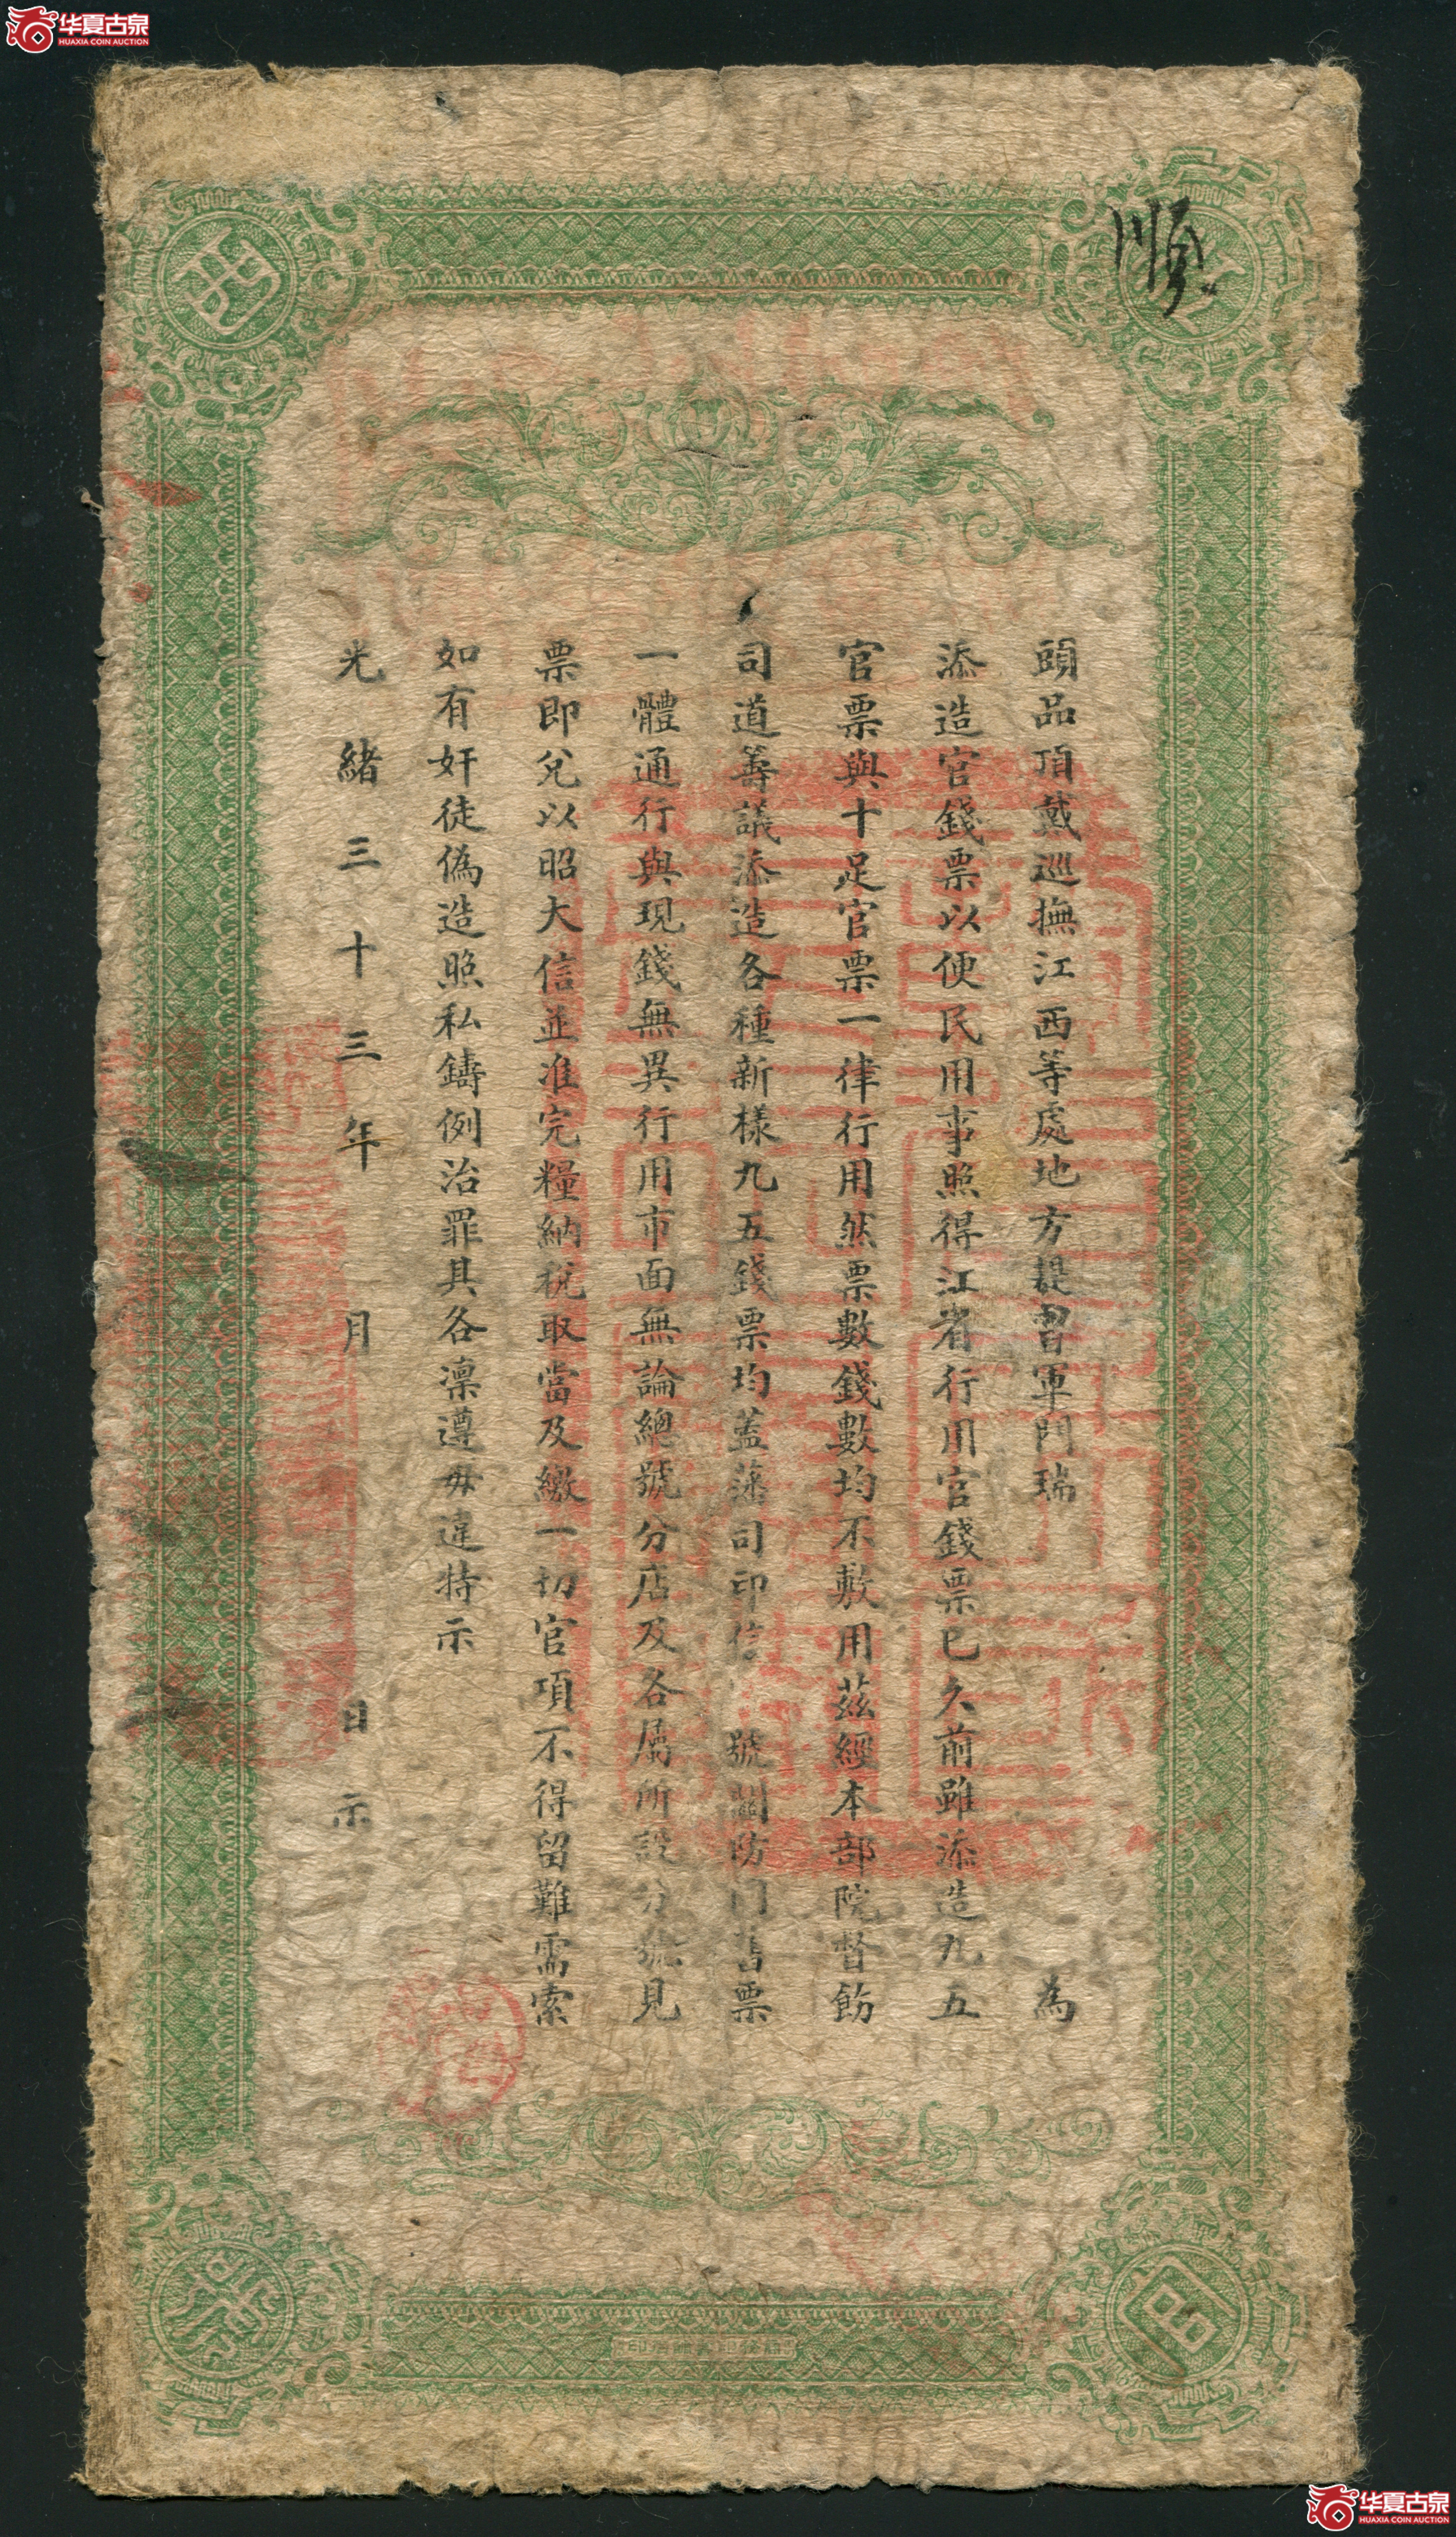 华夏古泉
HUAXIA COIN AUCTION
順
江
西
頭品頂戴巡撫江西等處地方提督軍門瑞 為
添造官錢票以便民用事照得江省行用官錢票已久前雖添造九五
官票與十足官票一律行用然票數錢數均不敷用茲經本部院督飭
司道籌議添造各種新樣九五錢票均蓋藩司印信 號關防同舊票
一體通行與現錢無異行用市面無論總號分店及各屬所設分號見
票即兌以昭大信並准完糧納稅取當及繳一切官項不得留難需索
如有奸徒偽造照私鑄例治罪其各凜遵毋違特示
光緒三十三年 月 日示
官
票
华夏古泉
HUAXIA COIN AUCTION